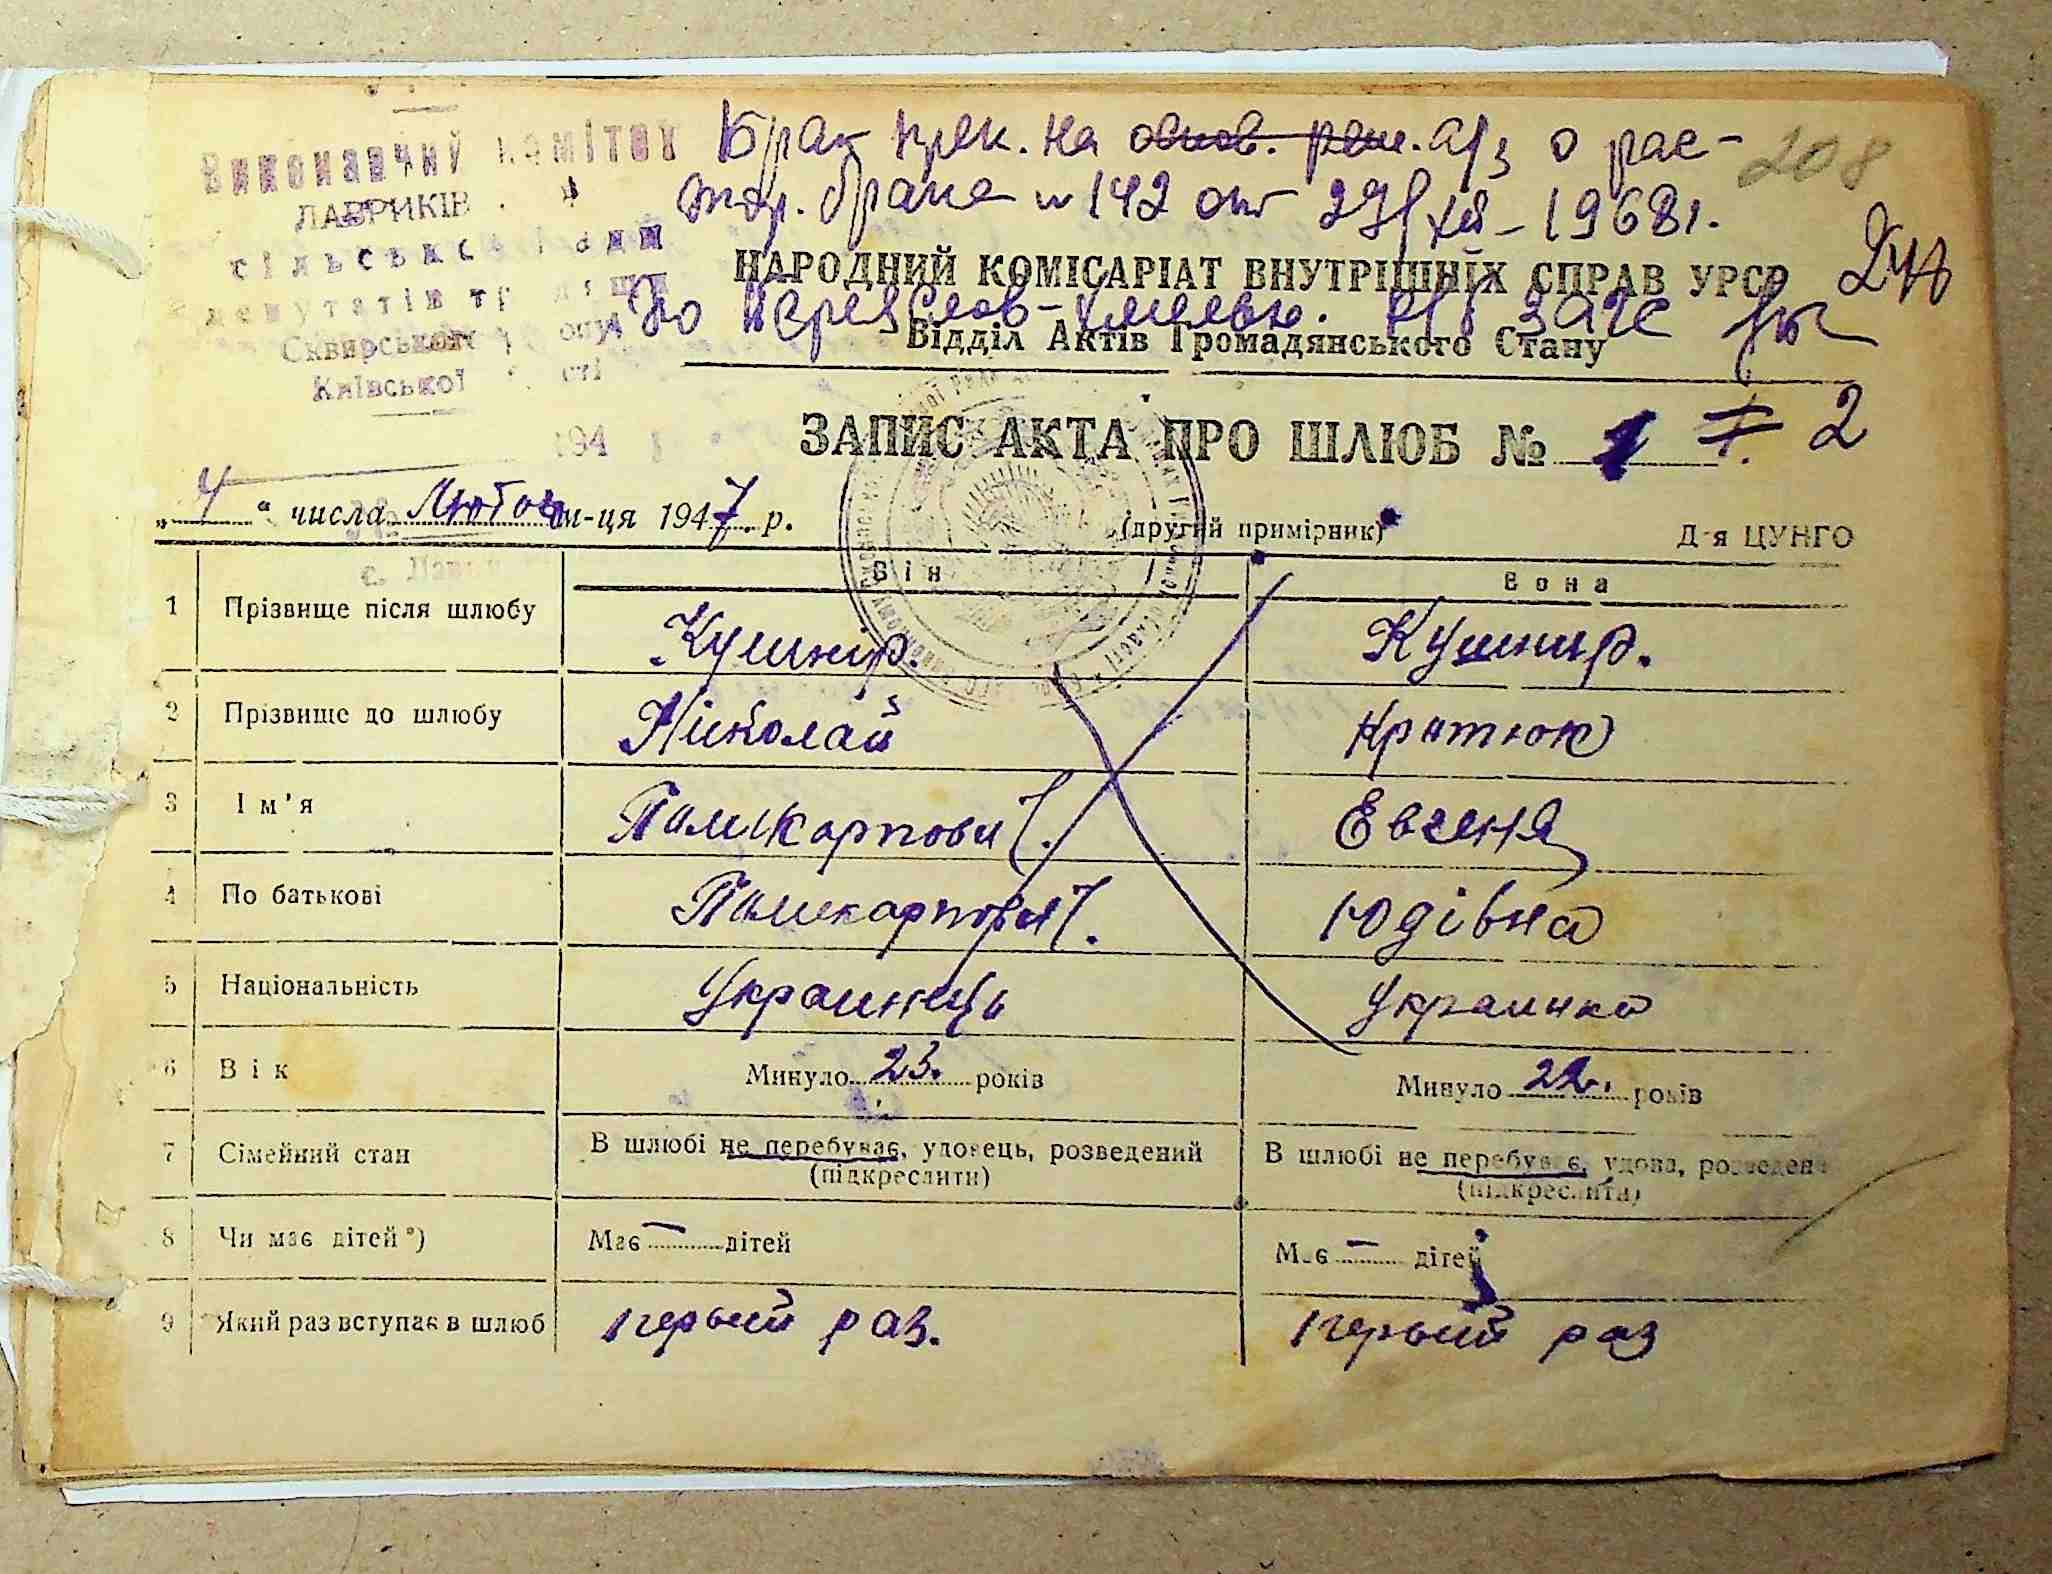 Виконавчий комітет
ЛАВРИКІВ
сільської ради
депутатів трудящих
Сквирського
Київської
194
Брак прек. на основ. реш. а/з о рас-
тор. брака № 142 от 29/XII-1968г.
208
НАРОДНИЙ КОМІСАРІАТ ВНУТРІШНІХ СПРАВ УРСР
по Переяслов-Хмельн. р/б ЗАГС
Відділ Актів Громадянського Стану
ЗАПИС АКТА ПРО ШЛЮБ № 1 2
„ 4 “ числа Лютого м-ця 1947 р.
(другий примірник)
Д-я ЦУНГО
Він Вона
1 Прізвище після шлюбу Кушнір. Кушнир.
2 Прізвище до шлюбу Ніколай
3 Ім'я Поликарпович. Евгеня
4 По батькові Поликарпович. Юдівна
5 Національність Украинць Украинка
6 Вік Минуло 23. років Минуло 22. років
7 Сімейний стан В шлюбі не перебуває, удовець, розведений В шлюбі не перебуває, удова, розведена
(підкреслити) (підкреслити)
8 Чи має дітей*) Має — дітей Має — дітей
9 Який раз вступає в шлюб перьвий раз. перьвий раз